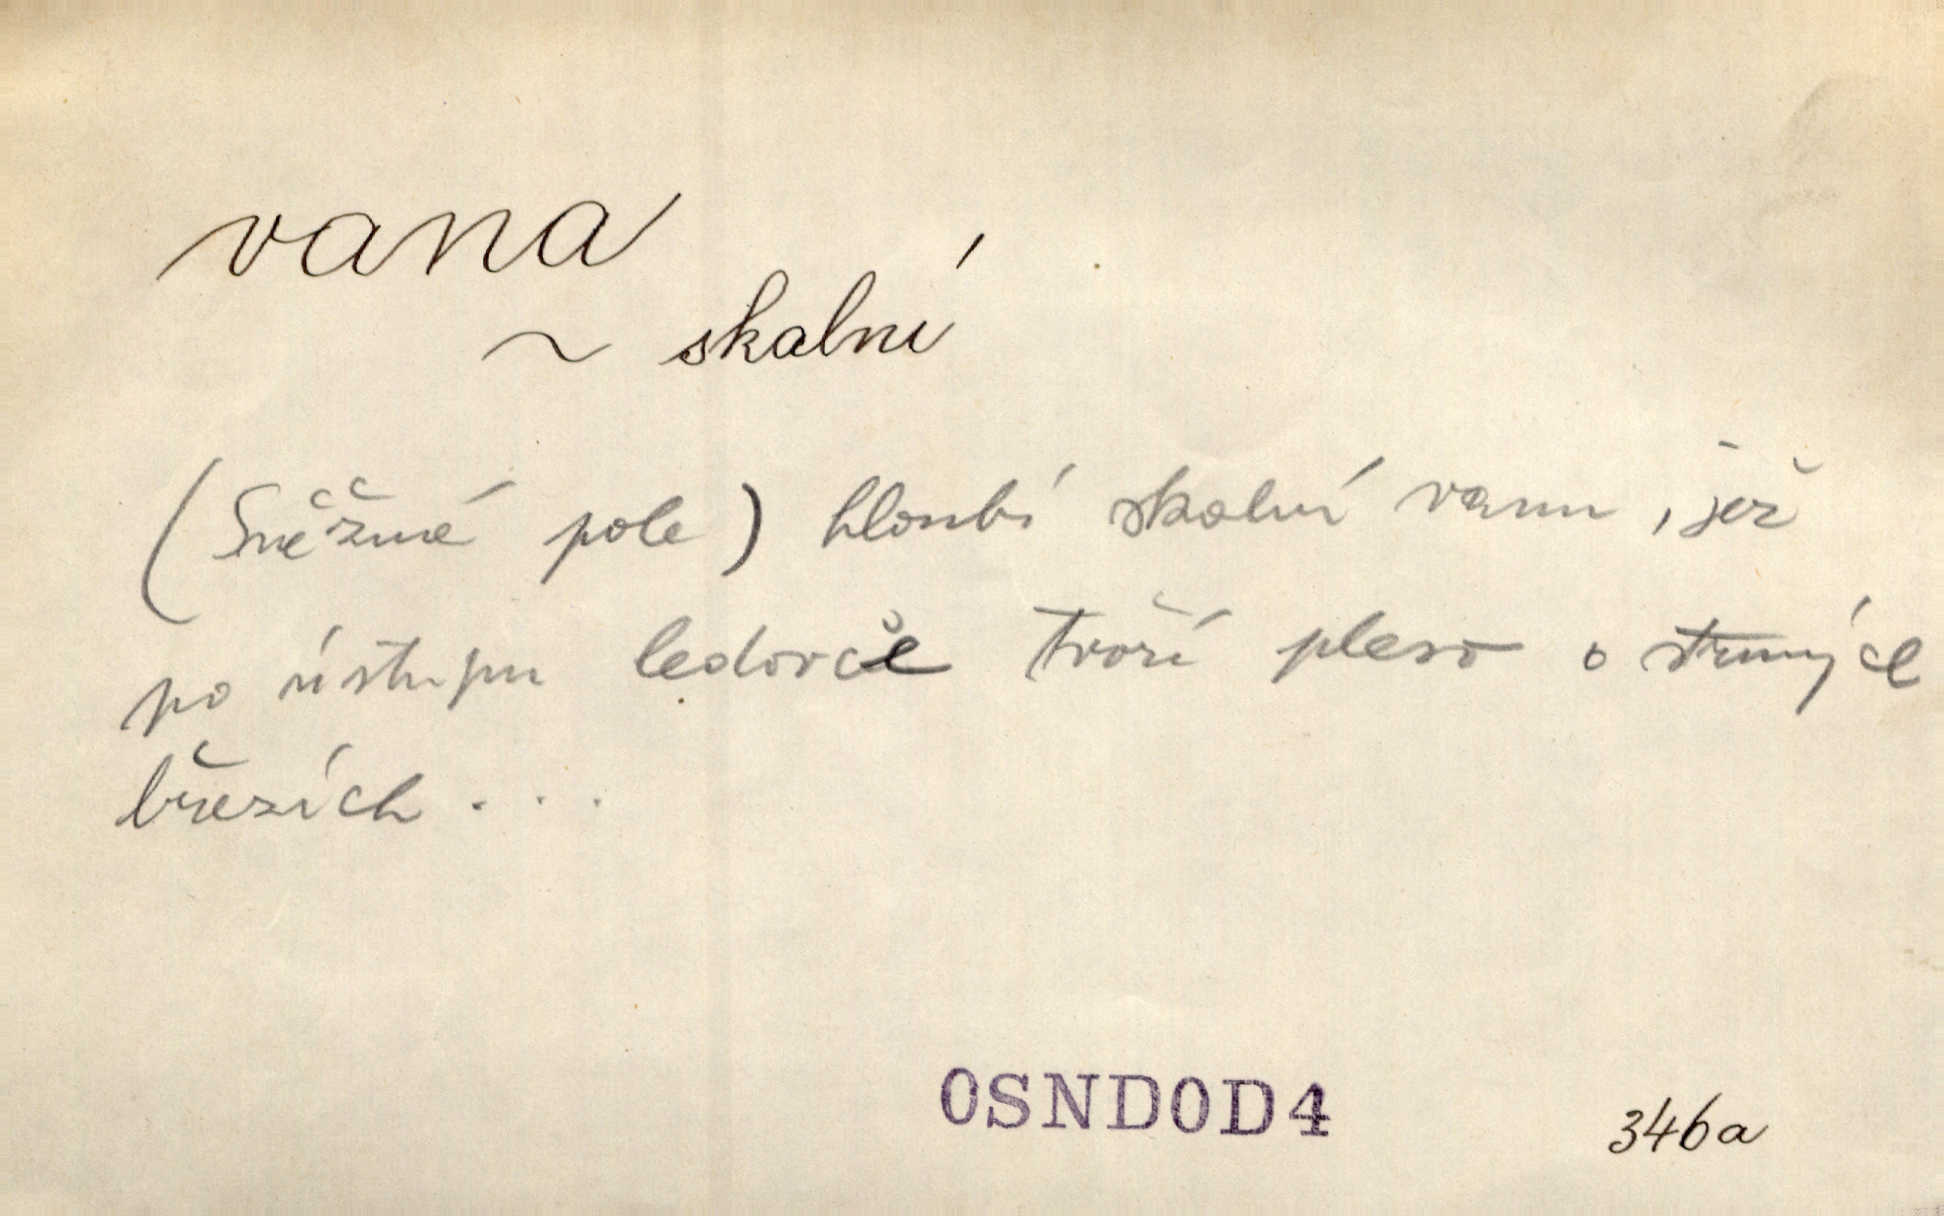 vana
~ skalní
(Sněžné pole) hloubí skalní vanu, jež
po ústupu ledovce tvoří pleso o strmých
březích...
OSNDOD4
346a